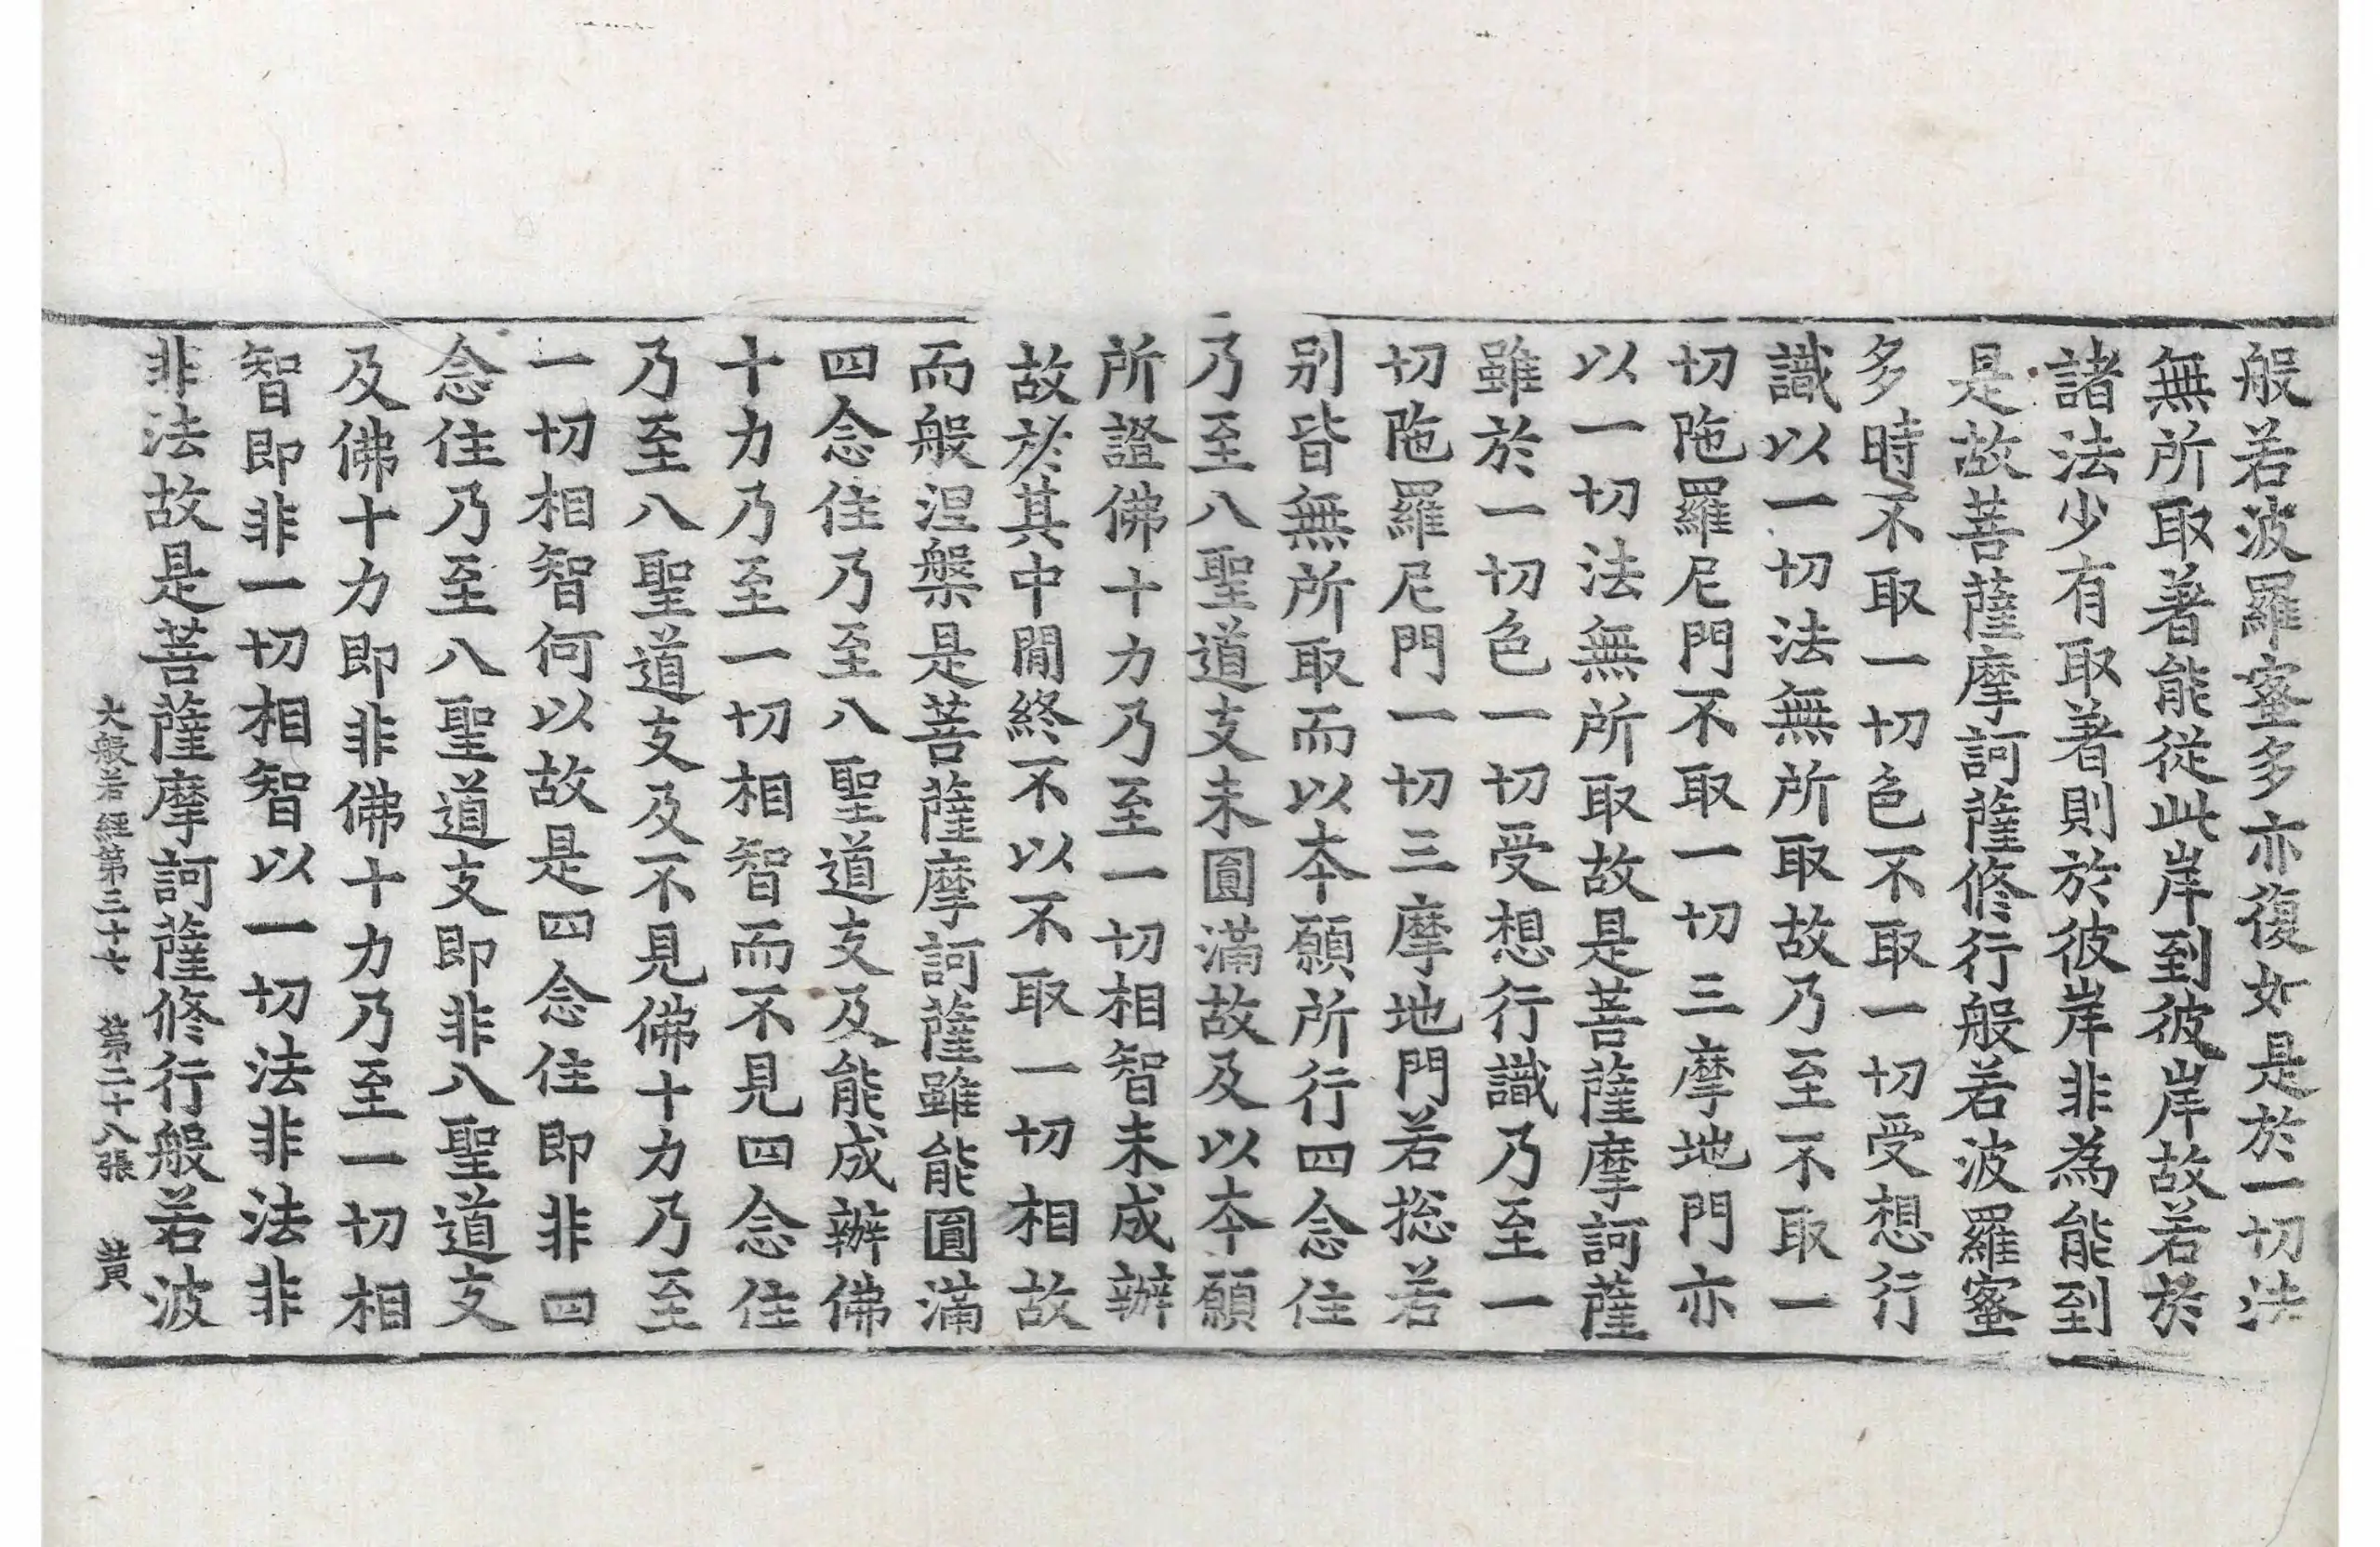 般若波羅蜜多亦復如是於一切法
無所取著能從此岸到彼岸故若於
諸法少有取著則於彼岸非為能到
是故菩薩摩訶薩修行般若波羅蜜
多時不取一切色不取一切受想行
識以一切法無所取故乃至不取一
切陁羅尼門不取一切三摩地門亦
以一切法無所取故是菩薩摩訶薩
雖於一切色一切受想行識乃至一
切陁羅尼門一切三摩地門若揔若
別皆無所取而以本願所行四念住
乃至八聖道支未圓滿故及以本願
所證佛十力乃至一切相智未成辦
故於其中閒終不以不取一切相故
而般涅槃是菩薩摩訶薩雖能圓滿
四念住乃至八聖道支及能成辦佛
十力乃至一切相智而不見四念住
乃至八聖道支及不見佛十力乃至
一切相智何以故是四念住即非四
念住乃至八聖道支即非八聖道支
及佛十力即非佛十力乃至一切相
智即非一切相智以一切法非法非
非法故是菩薩摩訶薩修行般若波
大般若經第三十七　第二十八張　黃